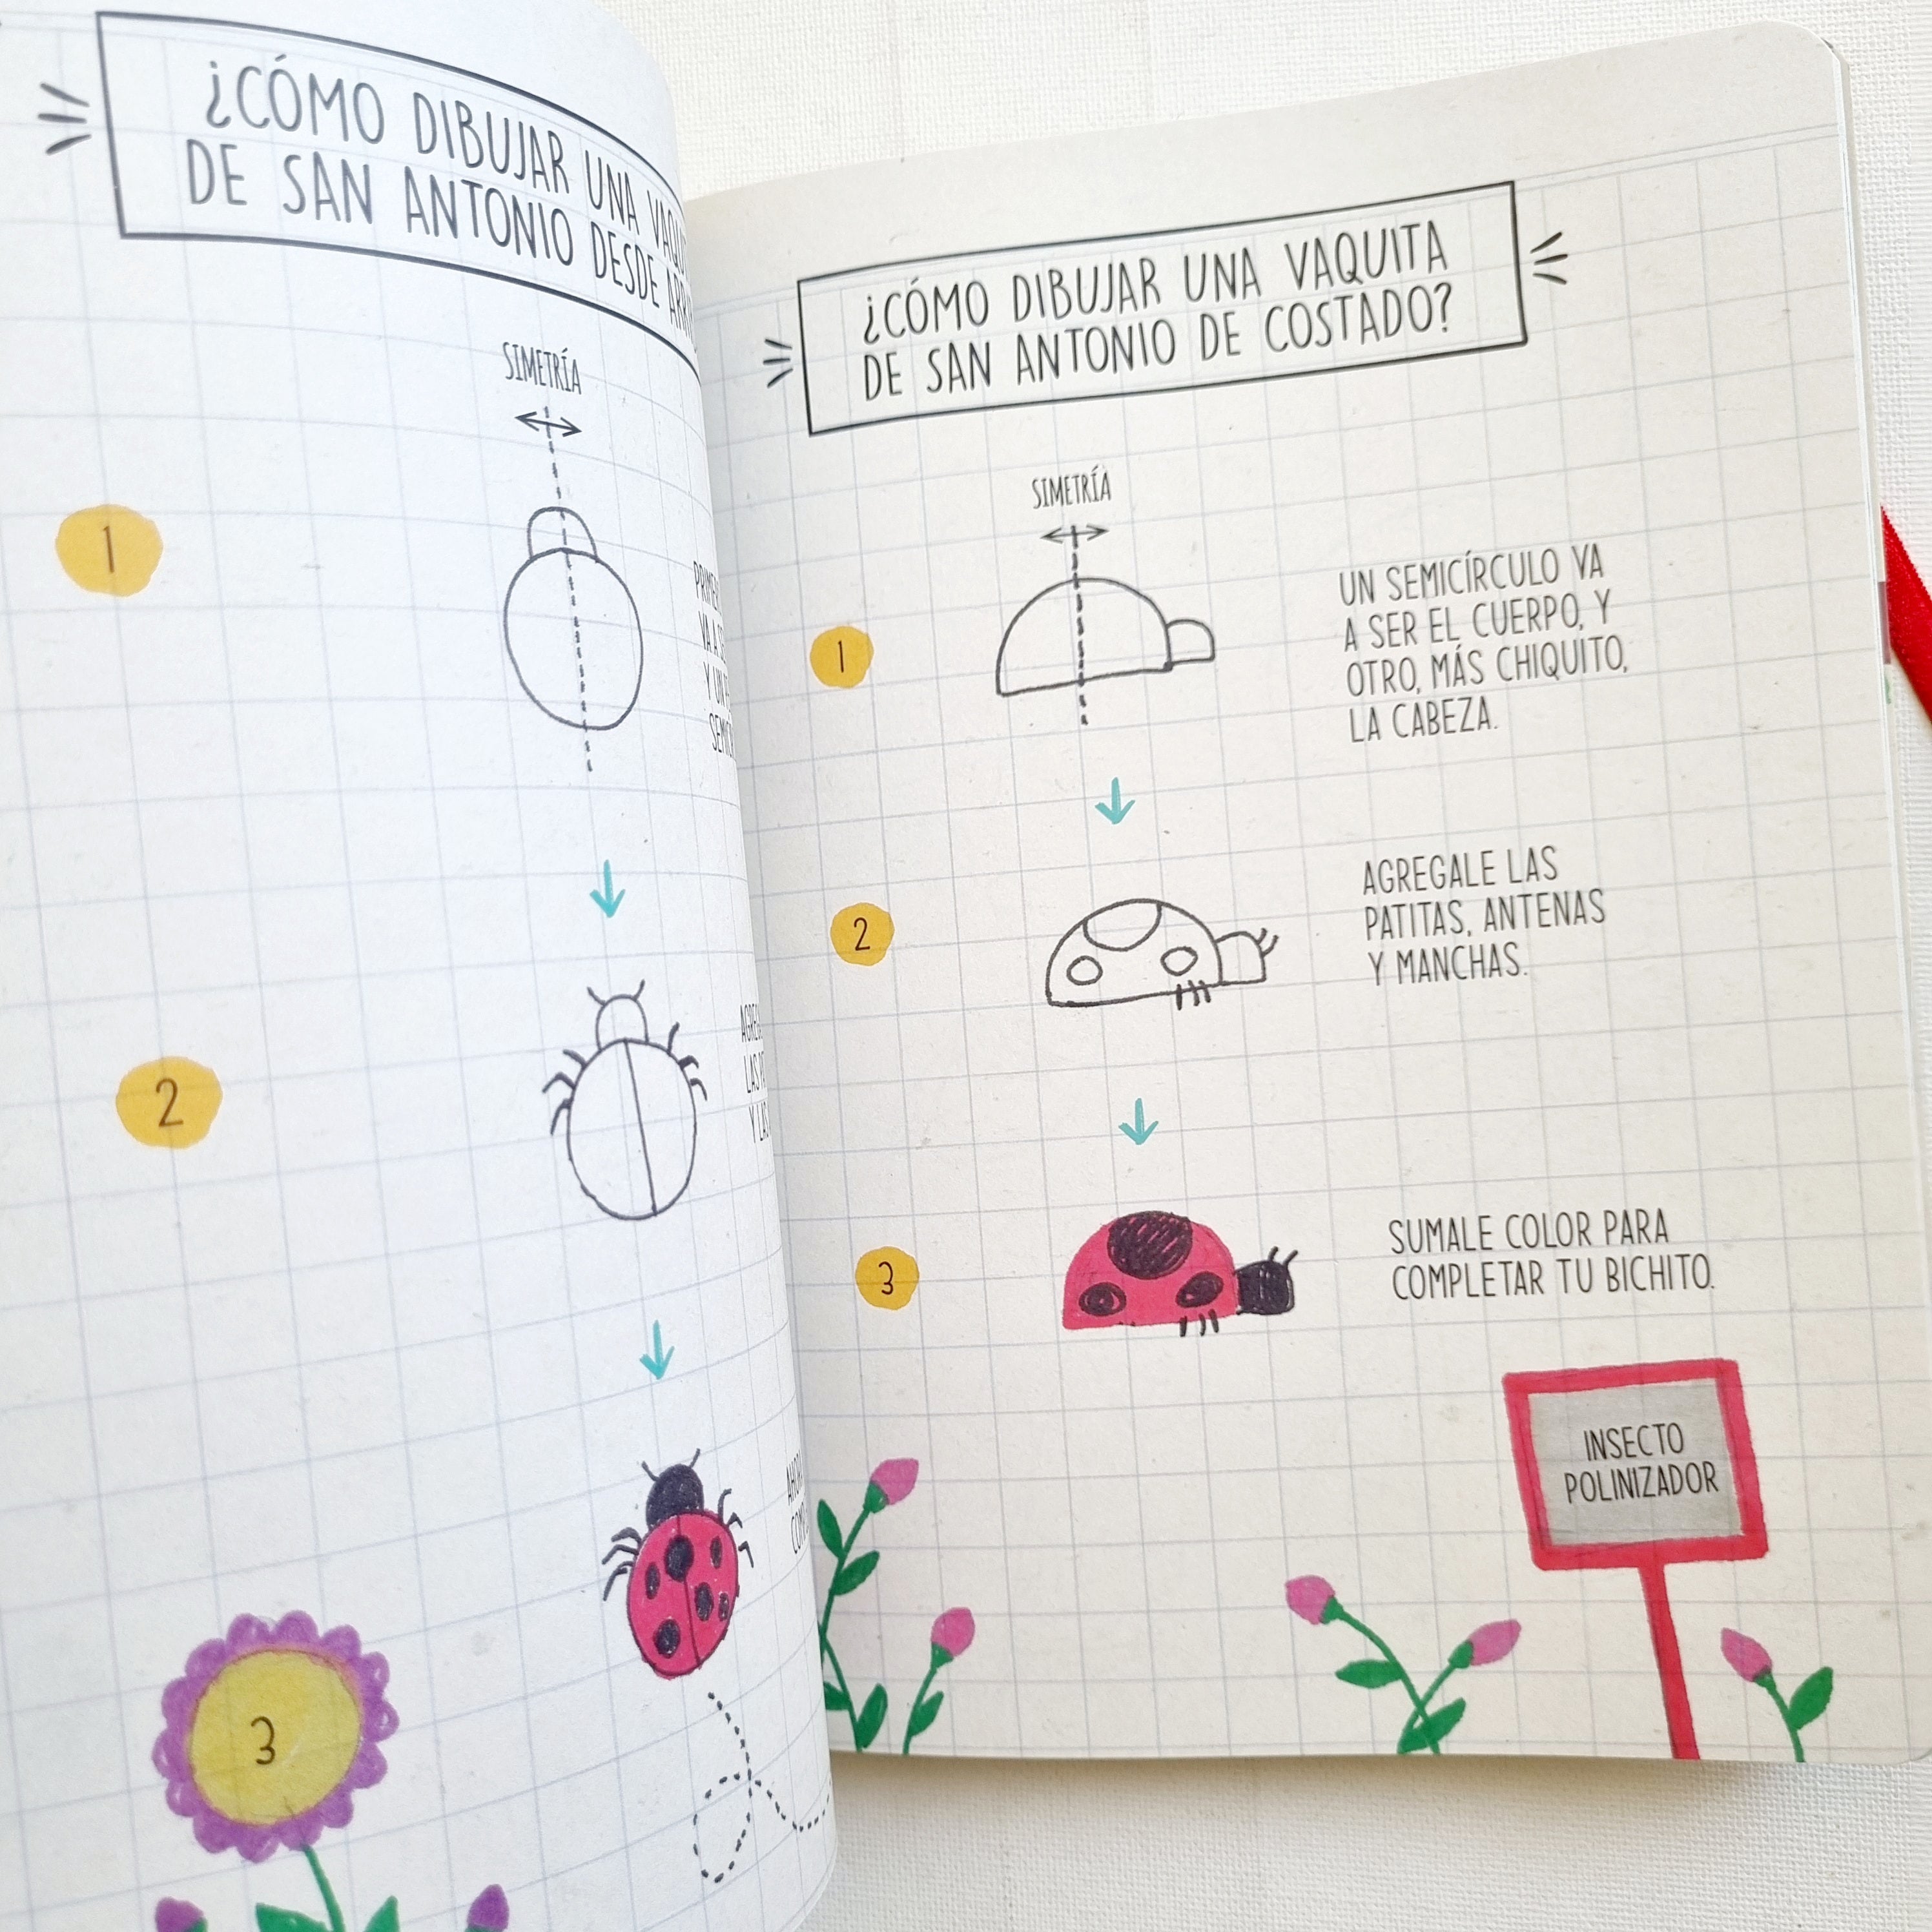 ¿CÓMO DIBUJAR UNA
DE SAN ANTONIO DESDE
SIMETRÍA
1
Y UN
2
Y LAS
3
¿CÓMO DIBUJAR UNA VAQUITA
DE SAN ANTONIO DE COSTADO?
SIMETRÍA
1
UN SEMICÍRCULO VA
A SER EL CUERPO, Y
OTRO, MÁS CHIQUITO,
LA CABEZA.
2
AGREGALE LAS
PATITAS, ANTENAS
Y MANCHAS.
3
SUMALE COLOR PARA
COMPLETAR TU BICHITO.
INSECTO
POLINIZADOR